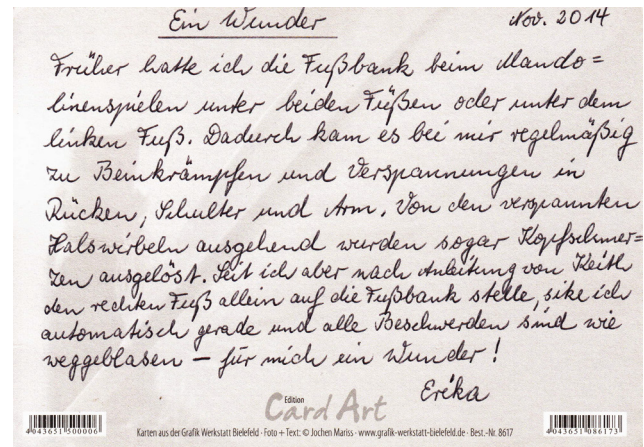 Ein Wunder Nov. 2014
Früher hatte ich die Fußbank beim Mando=
linenspielen unter beiden Füßen oder unter dem
linken Fuß. Dadurch kam es bei mir regelmäßig
zu Beinkrämpfen und Verspannungen in
Rücken, Schulter und Arm. Von den verspannten
Halswirbeln ausgehend wurden sogar Kopfschmer=
zen ausgelöst. Seit ich aber nach Anleitung von Keith
den rechten Fuß allein auf die Fußbank stelle, sitze ich
automatisch gerade und alle Beschwerden sind wie
weggeblasen – für mich ein Wunder!
Erika
Edition
Card Art
4043651500006 Karten aus der Grafik Werkstatt Bielefeld · Foto + Text: © Jochen Mariss · www.grafik-werkstatt-bielefeld.de · Best.-Nr. 8617 4043651086173